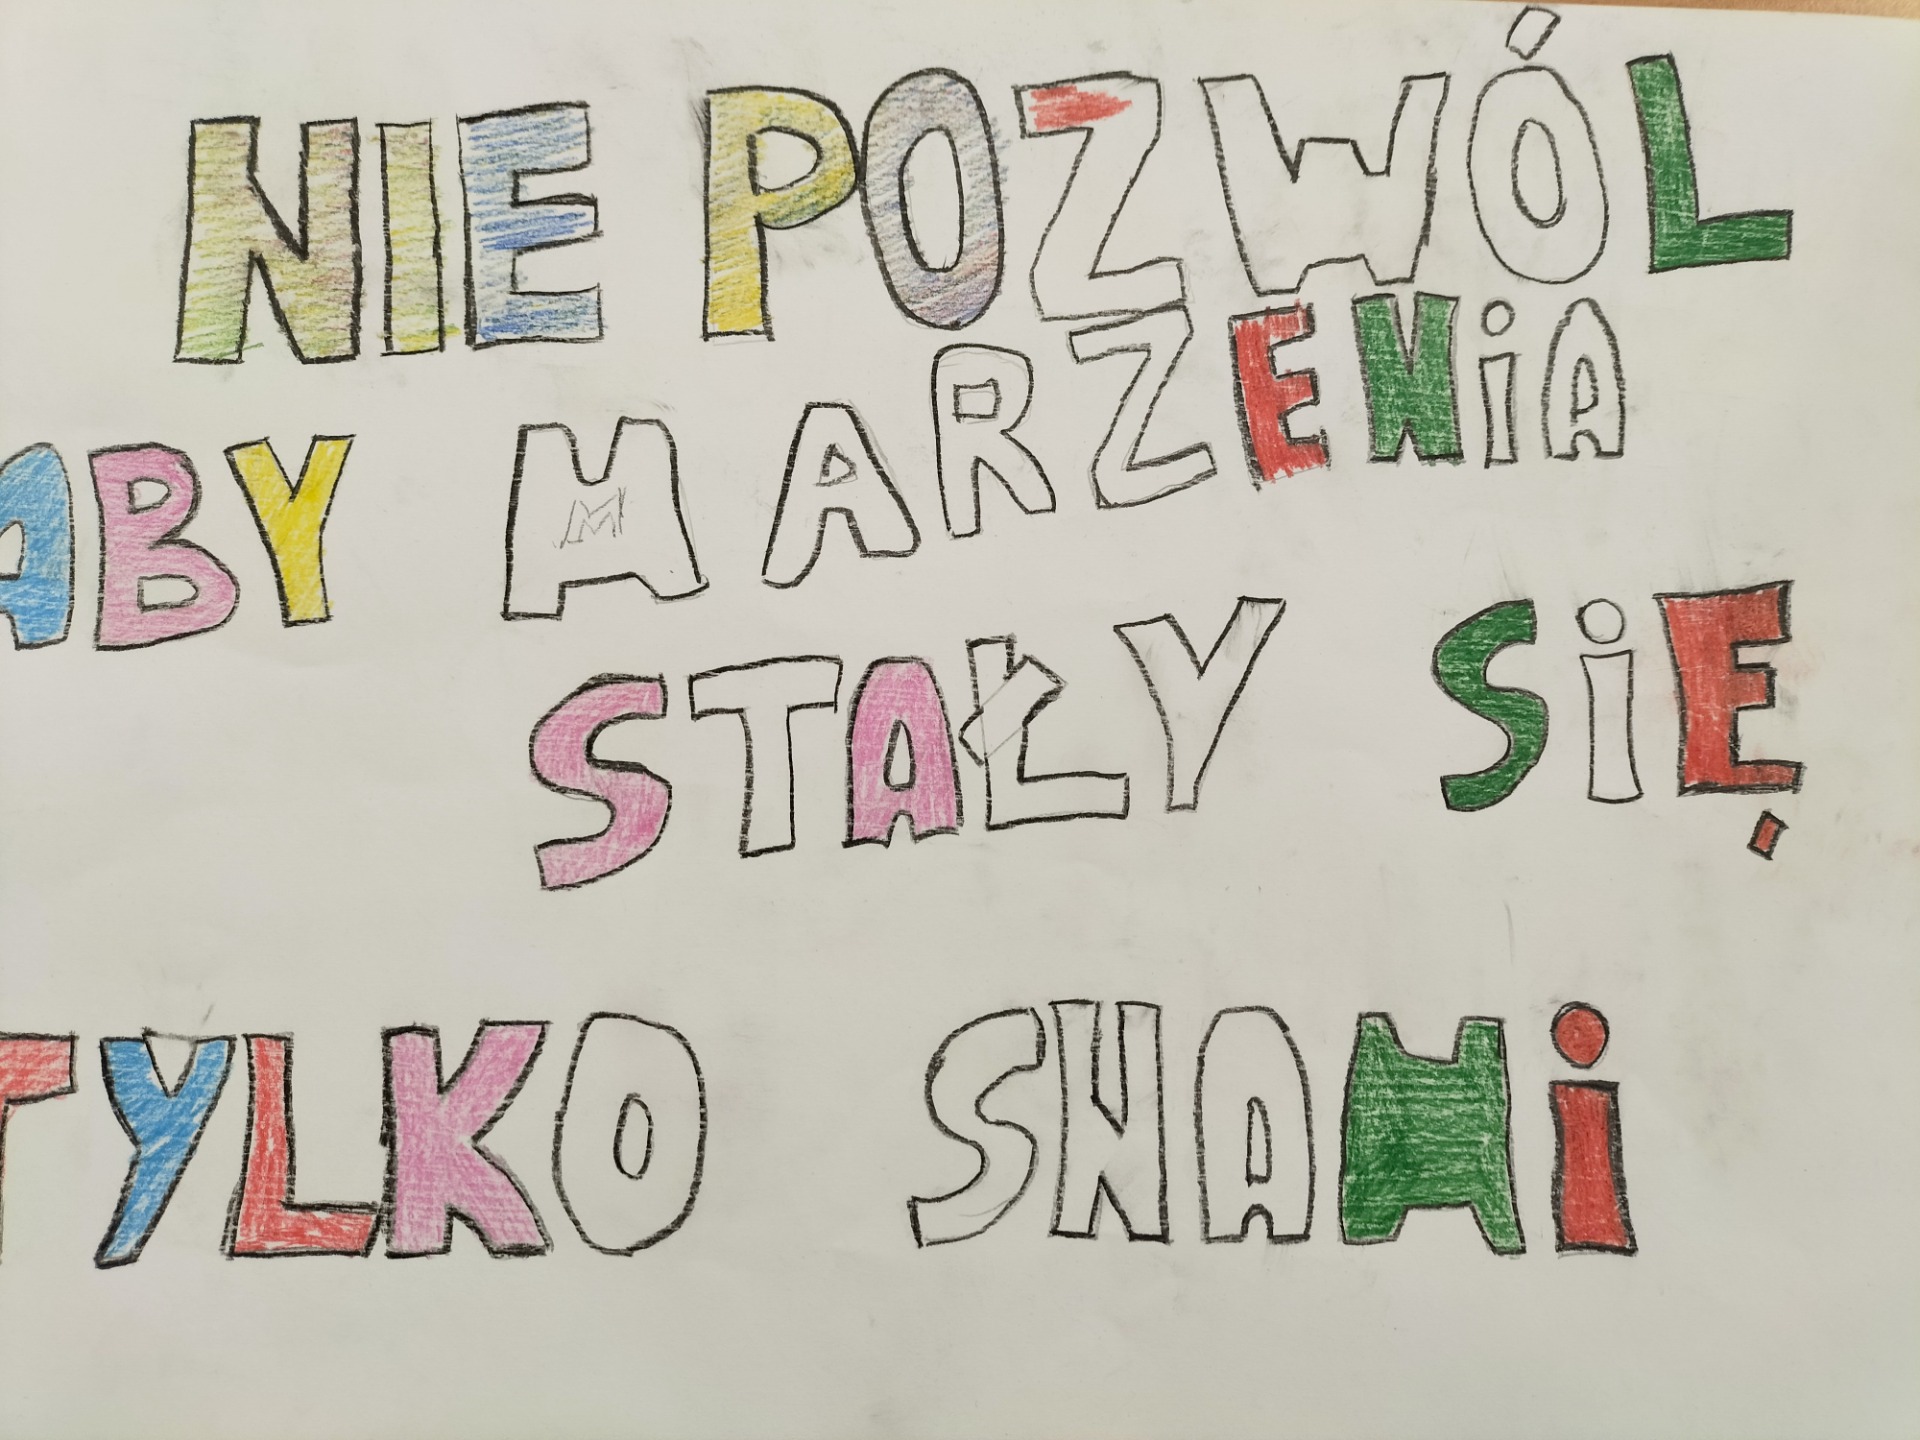 NIE POZWÓL
ABY MARZENiA
STAŁY SiĘ
TYLKO SNAMi